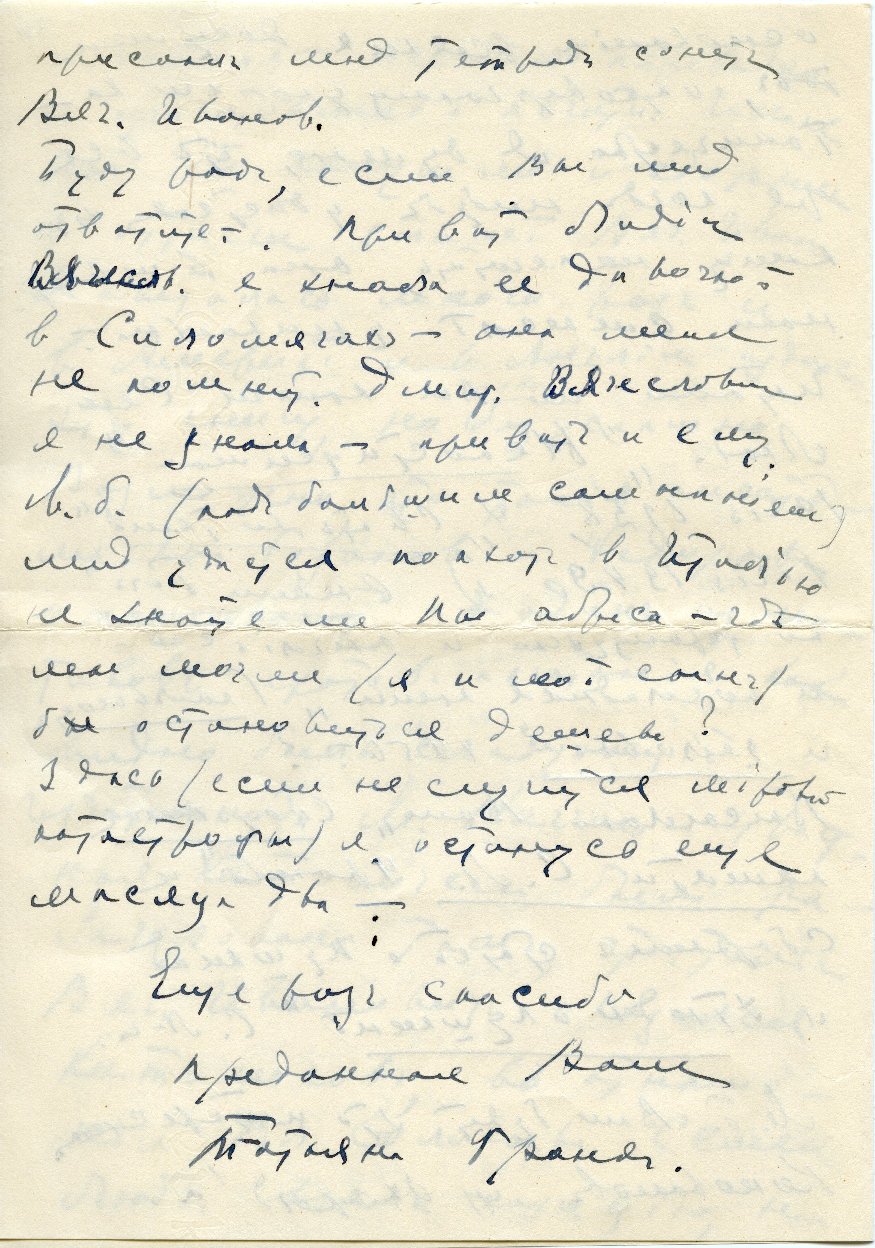 прислать мнѣ тетрадь сонетъ
Вяч. Иванов.
Буду рада, если Вы мнѣ
отвѣтите. Привѣт Лидіи
Вячеслав. я знала ее дѣвочкой
в Силомягахъ — она меня
не помнит. Дмитр. Вячеславич
я не знала — привѣтъ и ему.
М. б. (подъ большим сомнѣніем)
мнѣ удастся поѣхать в Италію
не знаете ли Вы адреса — гдѣ
мы могли (я и мой сынъ)
бы остановиться дешево?
Здѣсь (если не случится міровой
катастрофы) я останусь еще
мѣсяца два —
Еще разъ спасибо
преданная Вам
Татьяна Франкъ.